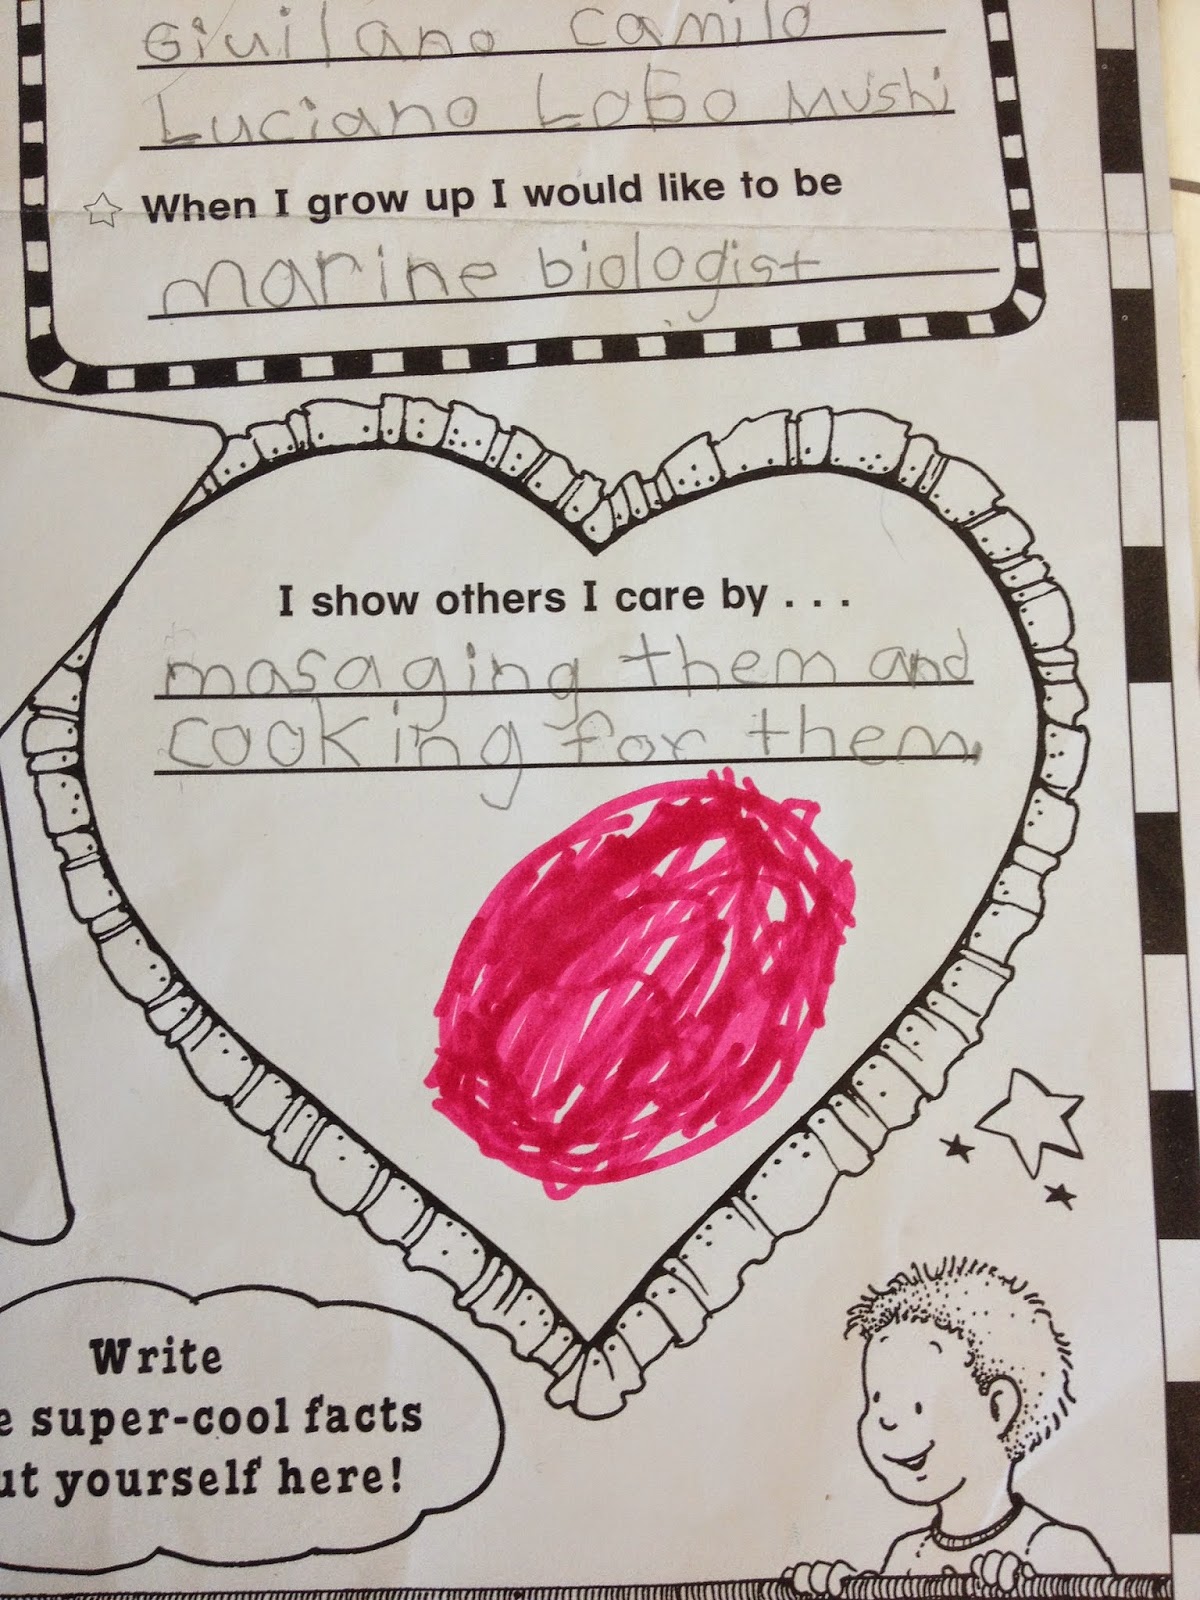 Giuilano Camilo
Luciano Lobo Mushi
When I grow up I would like to be
marine biologist
I show others I care by . . .
masaging them and
cooking for them.
Write
e super-cool facts
ut yourself here!